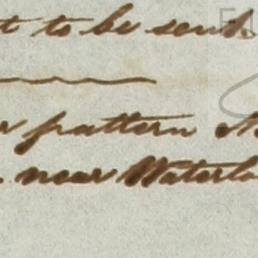 t to be send
r pattern
near Waterlo